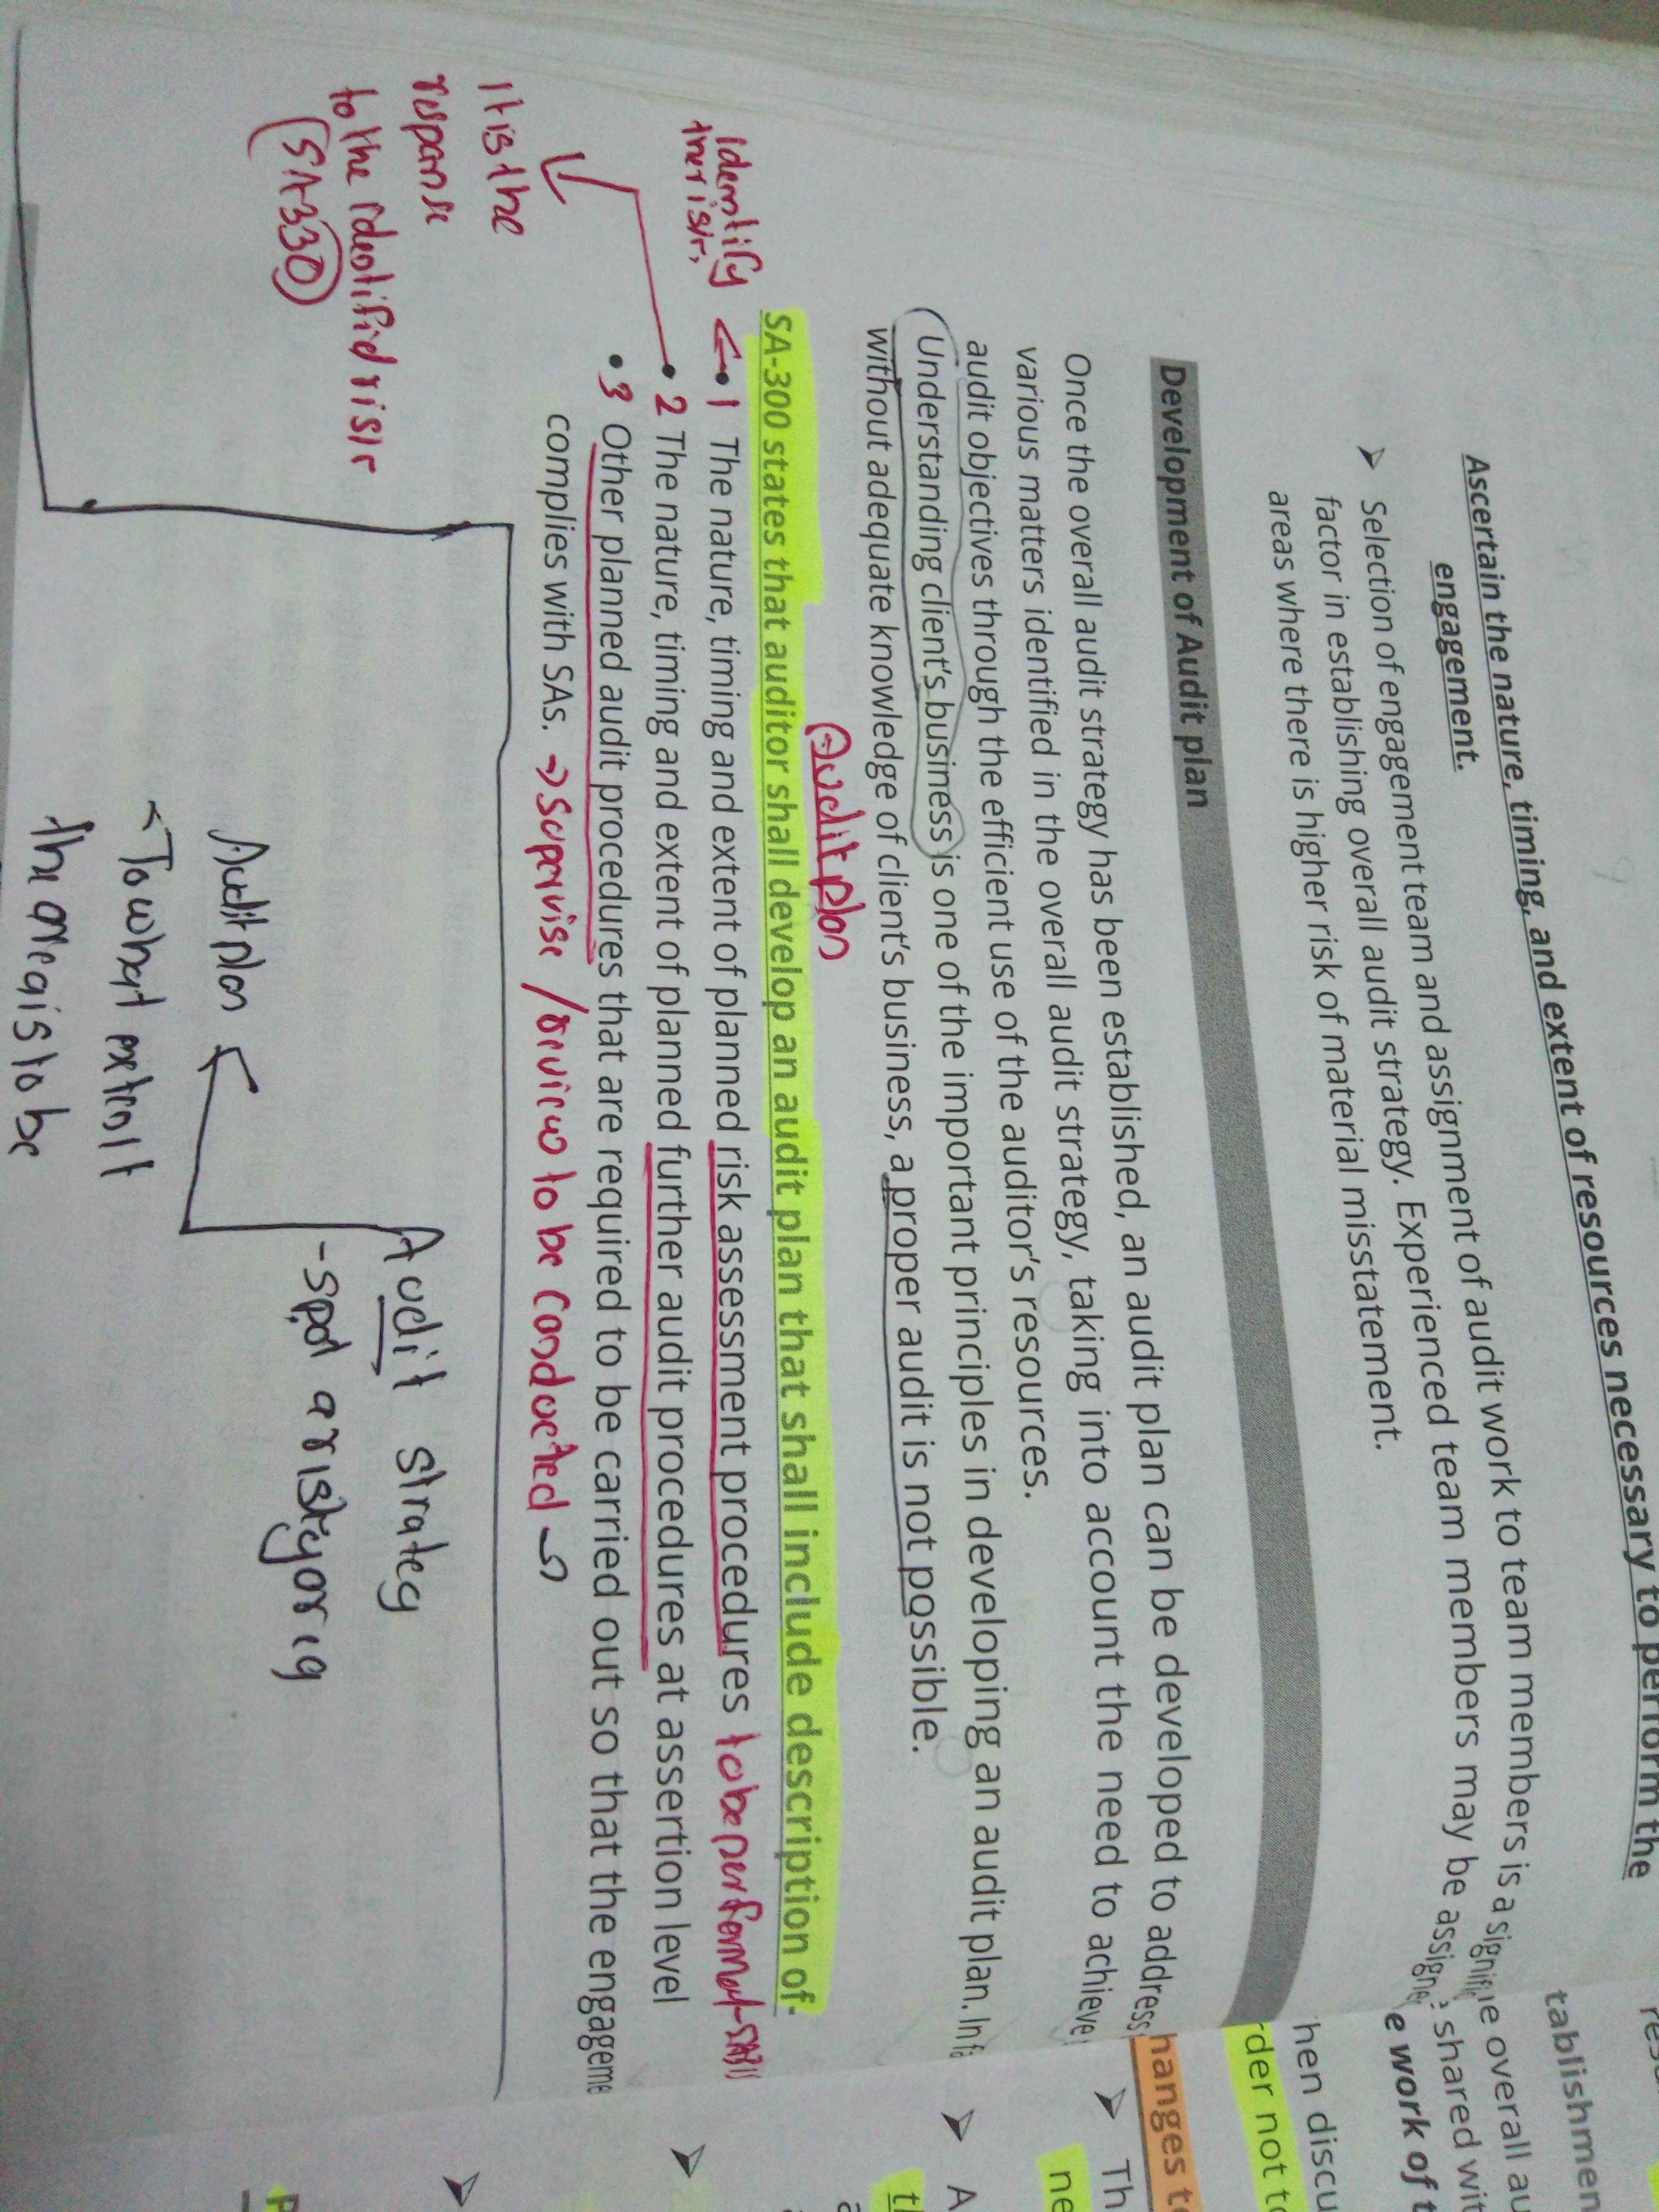 Ascertain the nature, timing, and extent of resources necessary to perform the
engagement.
➤ Selection of engagement team and assignment of audit work to team members is a
factor in establishing overall audit strategy. Experienced team members may be
areas where there is higher risk of material misstatement.
Development of Audit plan
Once the overall audit strategy has been established, an audit plan can be developed to address
various matters identified in the overall audit strategy, taking into account the need to achieve
audit objectives through the efficient use of the auditor's resources.
Understanding client's business is one of the important principles in developing an audit plan. In
without adequate knowledge of client's business, a proper audit is not possible.
Audit plan
SA-300 states that auditor shall develop an audit plan that shall include description of-
Identify
the risk,
← • 1 The nature, timing and extent of planned risk assessment procedures to be performed
• 2 The nature, timing and extent of planned further audit procedures at assertion level
• 3 Other planned audit procedures that are required to be carried out so that the
complies with SAs. → supervise / review to be conducted
It is the
response
to the identifid risk
(SA330)
Audit strateg
Audit plan
- To what extent
the area is to be
tablishmen
overall au
shared wit
e work of t
hen discu
rder not to
hanges to
➤ Th
ne
➤ A
➤
➤